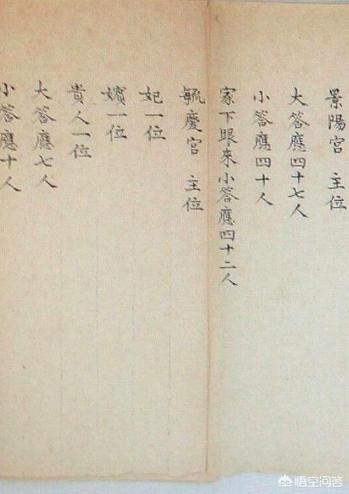 景陽宮 主位
大答應四十七人
小答應四十人
家下眼來小答應四十二人
毓慶宮 主位
妃一位
嬪一位
貴人一位
大答應七人
小答應十人
悟空问答